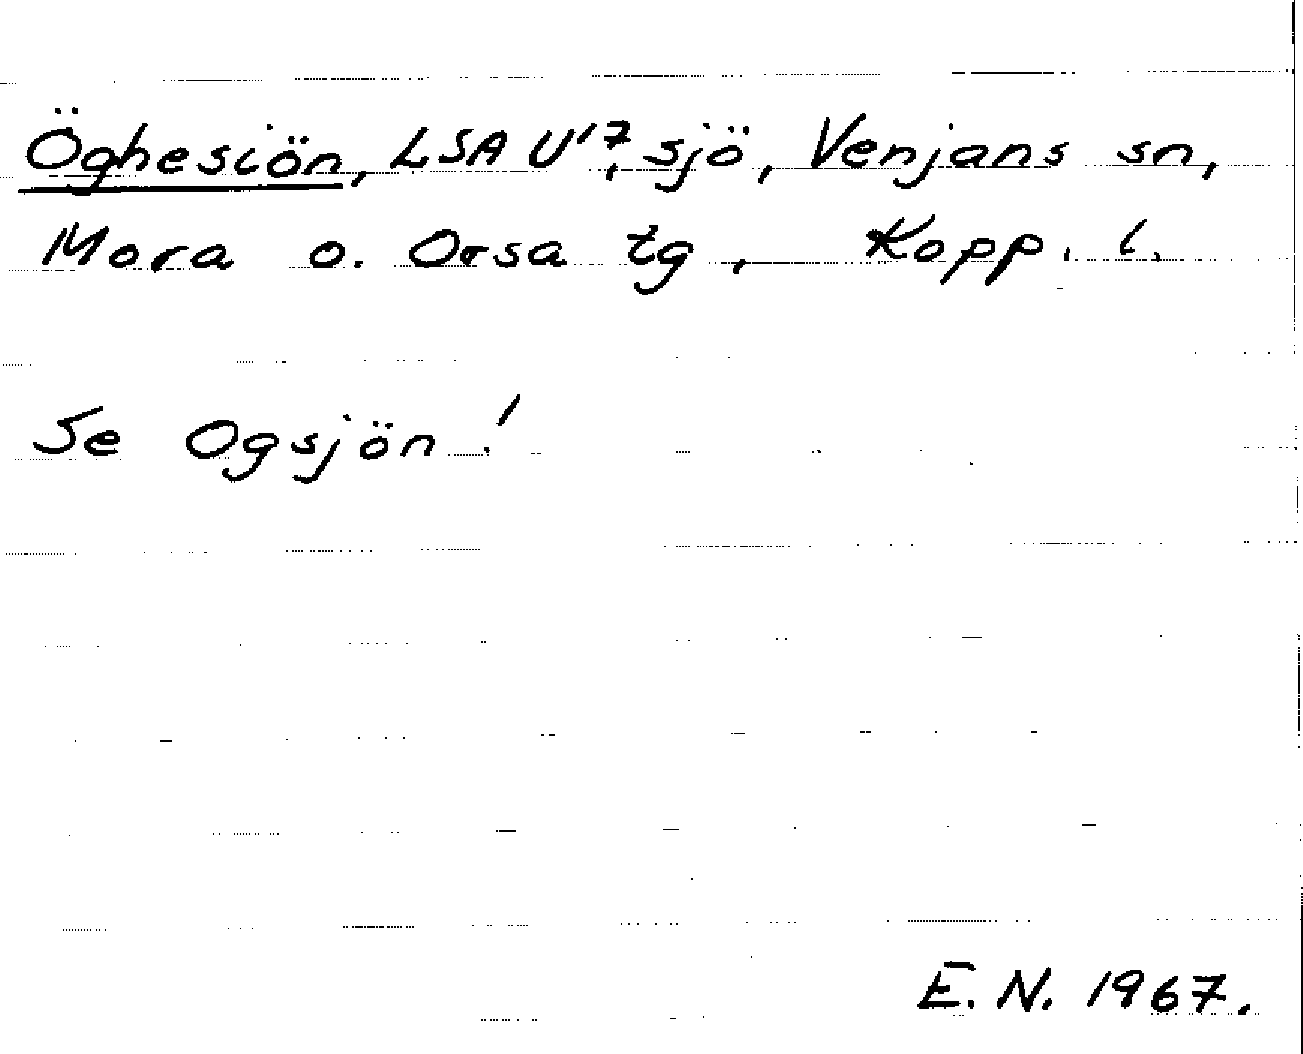 Öghesiön, LSA U'7, sjö, Venjans sn,
Mora o. Orsa tg, Kopp. l.
Se Ogsjön!
E. N. 1967.